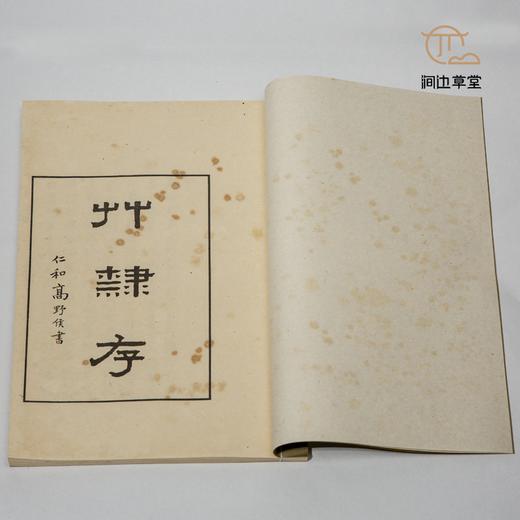 涧边草堂
艸隸存
仁和高野侯書